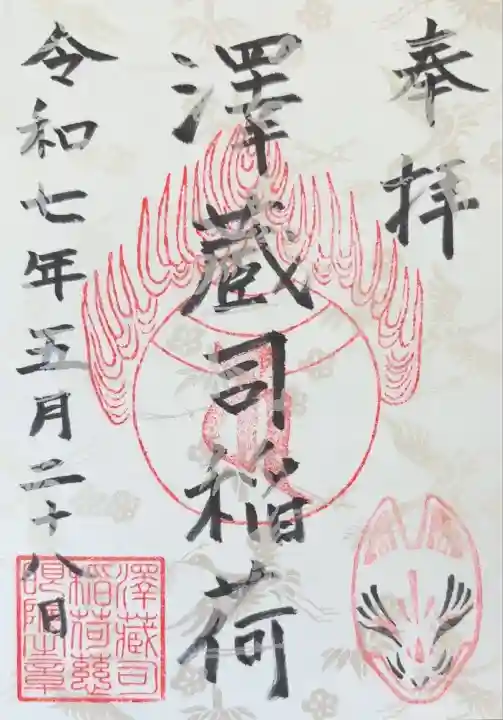 奉拝
澤蔵司稲荷
令和七年五月二十八日
澤蔵司
稲荷慈
眼院章